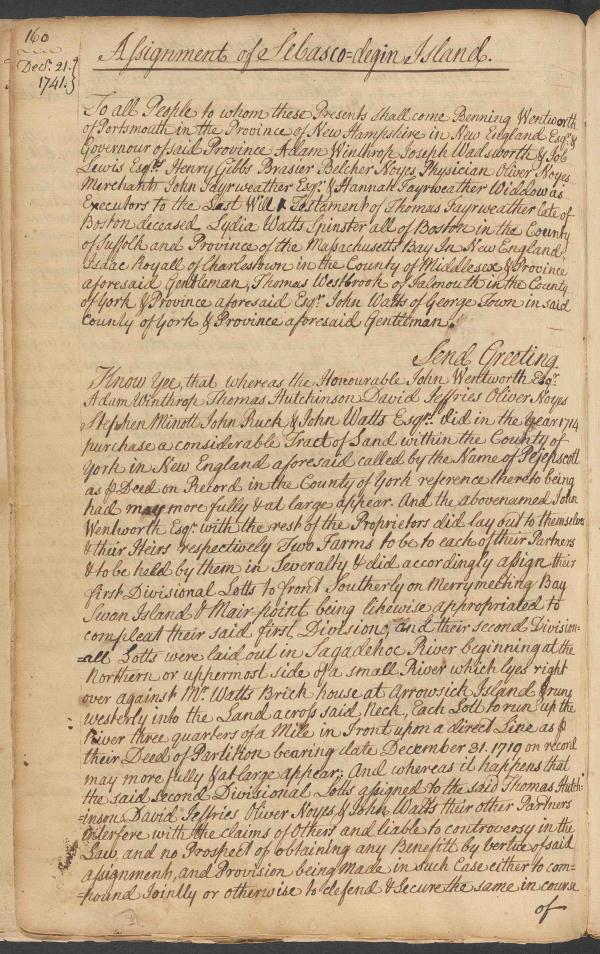 160
Decr. 21. 1741.}
Assignment of Sebasco=degin Island.
To all People to whom these Presents shall come Benning Wentworth
of Portsmouth in the Province of New Hampshire in New England Esqr. &
Governour of said Province Adam Winthrop Joseph Wadsworth & Job
Lewis Esqrs. Henry Gibbs Brasier Belcher Noyes Physician Oliver Noyes
Merchant John Fayrweather Esqr. & Hannah Fayrweather Widdow as
Executors to the Last Will & Testament of Thomas Fayrweather late of
Boston deceased Lydia Watts Spinster all of Boston in the County
of Suffolk and Province of the Massachusetts Bay In New England,
Isaac Royall of Charlestown in the County of Middlesex & Province
aforesaid Gentleman, Thomas Westbrook of Falmouth in the County
of York & Province aforesaid Esqr. John Watts of George Town in said
County of York & Province aforesaid Gentleman.
Send Greeting.
Know Yee, that whereas the Honourable John Wentworth Esqr.
Adam Winthrop Thomas Hutchinson David Jeffries Oliver Noyes
Stephen Minott John Ruck & John Watts Esqrs. did in the Year 1714
purchase a considerable Tract of Land within the County of
York in New England aforesaid called by the Name of Pejepscott
as ⅌ Deed on Record in the County of York reference thereto being
had may more fully & at large appear. And the abovenamed John
Wentworth Esqr. with the rest of the Proprietors did lay out to themselves
& their Heirs respectively Two Farms to be to each of their Partners
& to be held by them in Severalty & did accordingly assign their
first Divisional Lotts to front Southerly on Merrymeeting Bay
Swan Island & Mair-point being likewise appropriated to
compleat their said first Division, and their second Division=
=all Lotts were laid out in Sagadehoc River beginning at the
Northern or uppermost side of a small River which lyes right
over against Mr. Watts Brick house at Arrowsick Island & runs
westerly into the Land across said Neck, Each Lott to run up the
River three quarters of a Mile in Front upon a direct Line as ⅌
their Deed of Partition bearing date December 31. 1719 on record
may more fully & at large appear; And whereas it happens that
the said Second Divisional Lotts assigned to the said Thomas Hutch=
=inson David Jeffries Oliver Noyes & John Watts their other Partners
Interfere with the claims of Others and liable to controversy in the
Law, and no Prospect of obtaining any Benefitt by vertue of said
assignment, and Provision being Made in such Case either to com=
=pound Jointly or otherwise to defend & Secure the same in course
of